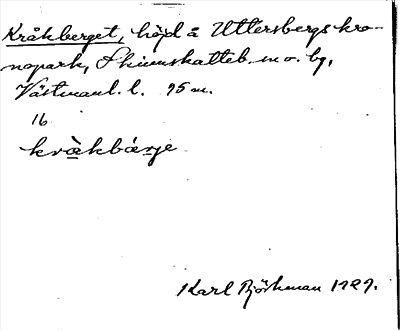 Kråkberget, höjd å Uttersbergs kro-
nopark, Skinnskatteb. m o. bg,
Västmanl. l. 95 m.
16
kråkbärje
Karl Björkman 1929.